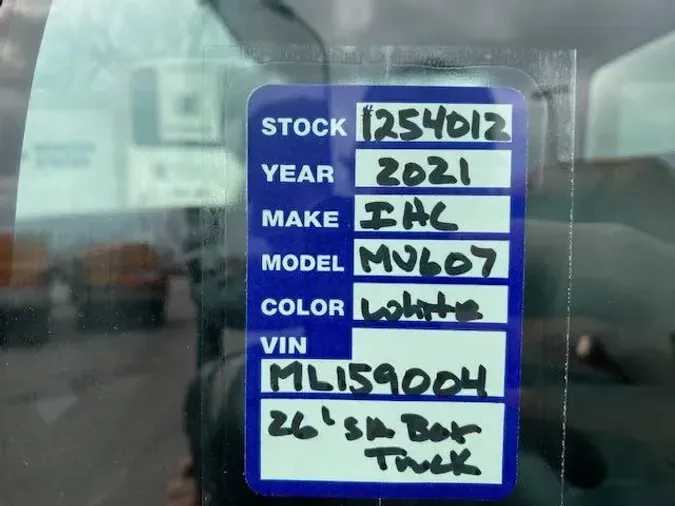 STOCK 1254012
YEAR 2021
MAKE IHC
MODEL MV607
COLOR White
VIN
ML159004
26' SA Box
Truck